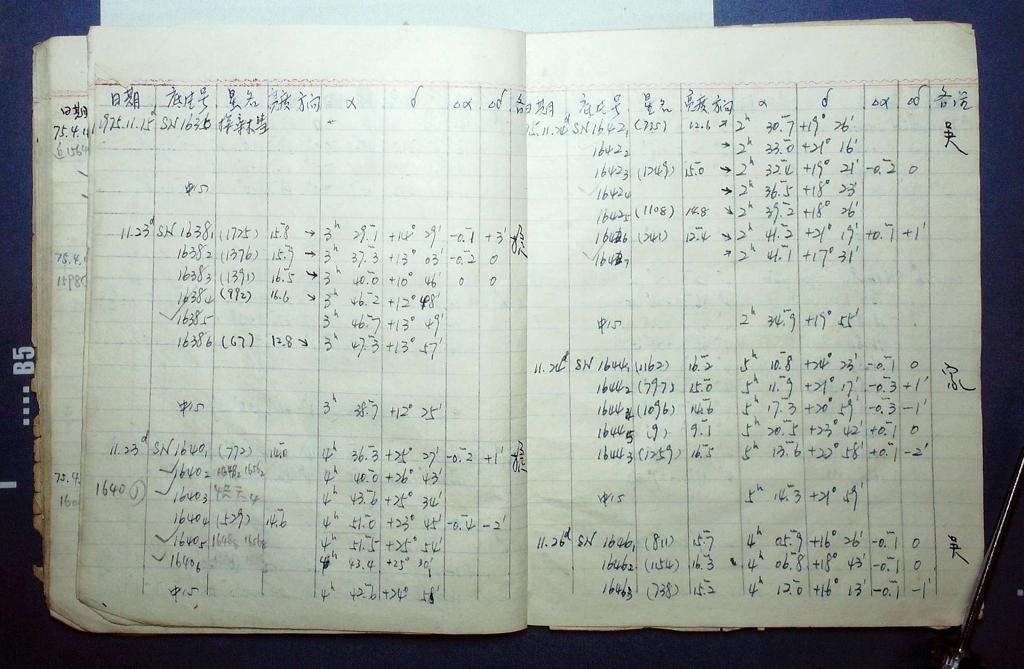 日期 底片号 星名 亮度 方向 α δ Δα Δδ
1975.11.15ᵈ SN1635
中心
11.23ᵈ SN1638₁ (1725) 15.8 → 3ʰ 29.1 +14° 29′ -0.1 +3′
1638₂ (1376) 15.9 → 3ʰ 37.3 +13° 03′ -0.2 0
1638₃ (1391) 16.5 → 3ʰ 40.0 +10° 46′ 0 0
1638₄ (992) 16.6 → 3ʰ 46.2 +12° 48′
✓1638₅ 3ʰ 46.7 +13° 49′
1638₆ (67) 12.8 → 3ʰ 47.3 +13° 57′
中心 3ʰ 38.7 +12° 25′
11.23ᵈ SN1640₁ (772) 14.0 4ʰ 36.3 +25° 27′ -0.2 +1′
✓1640₂ 4ʰ 40.0 +26° 43′
1640 ① ✓1640₃ 4ʰ 43.6 +25° 34′
1640₄ (529) 14.6 4ʰ 51.0 +23° 45′ -0.4 -2′
✓1640₅ 4ʰ 51.5 +25° 54′
✓1640₆ 4ʰ 43.4 +25° 30′
中心 4ʰ 42.6 +24°
日期 底片号 星名 亮度 方向 α δ Δα Δδ 备注
75.11.24ᵈ SN1642₁ (725) 12.6 → 2ʰ 30.7 +19° 26′ 吴
1642₂ → 2ʰ 33.0 +21° 16′
1642₃ (1249) 15.0 → 2ʰ 32.4 +19° 21′ -0.2 0
1642₄ → 2ʰ 36.5 +18° 23′
1642₅ (1108) 14.8 → 2ʰ 39.2 +18° 26′
1642₆ (241) 12.4 → 2ʰ 41.2 +21° 19′ +0.1 +1′
1642₇ → 2ʰ 41.1 +17° 31′
中心 2ʰ 34.9 +19° 55′
11.24ᵈ SN1644₁ (1162) 16.2 5ʰ 10.8 +24° 23′ -0.1 0
1644₂ (797) 15.0 5ʰ 11.9 +21° 17′ -0.3 +1′
1644₄ (1096) 14.6 5ʰ 17.3 +20° 59′ -0.3 -1′
1644₅ (9) 9.1 5ʰ 20.5 +23° 42′ +0.1 0
1644₃ (1259) 16.5 5ʰ 13.6 +22° 58′ +0.1 -2′
中心 5ʰ 14.3 +21° 59′
11.26ᵈ SN1646₁ (811) 15.7 4ʰ 05.9 +16° 26′ -0.1 0 吴
1646₂ (1154) 16.3 4ʰ 06.8 +18° 43′ -0.1 0
1646₃ (738) 15.2 4ʰ 12.0 +16° 13′ -0.1 -1′
B5